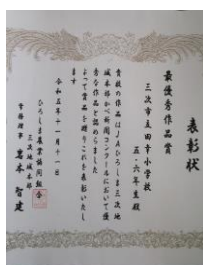 表彰状
最優秀作品賞
三次市立田幸小学校
五・六年生殿
貴校の作品はJAひろしま三次地
域本部かべ新聞コンクールにおいて優
秀な作品と認められました
よって賞品を贈りこれを表彰いたし
ます
令和五年十一月十一日
ひろしま農業協同組合
三次地域本部
常務理事 岩本智建